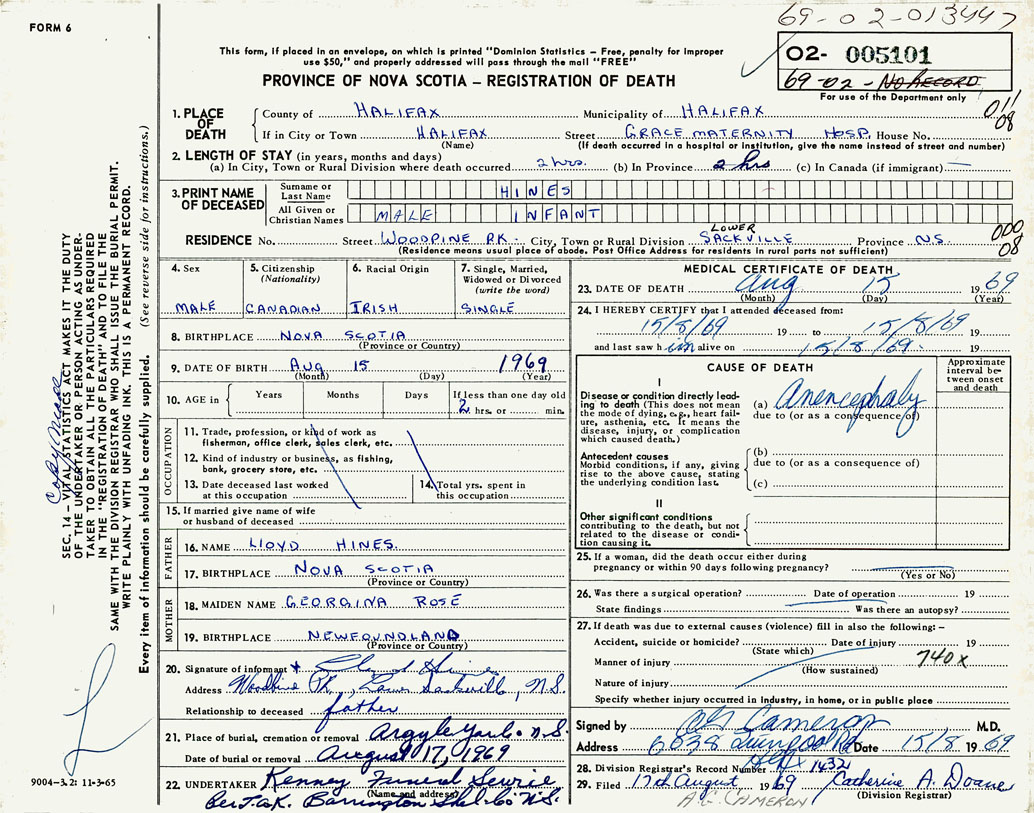 69-02-013447
FORM 6
This form, if placed in an envelope, on which is printed "Dominion Statistics – Free, penalty for improper
use $50," and properly addressed will pass through the mail "FREE"
PROVINCE OF NOVA SCOTIA – REGISTRATION OF DEATH
02- 005101
69-02- NO RECORD
For use of the Department only
011
08
1. PLACE OF DEATH
County of HALIFAX Municipality of HALIFAX
If in City or Town HALIFAX Street GRACE MATERNITY HOSP. House No.
(Name) (If death occurred in a hospital or institution, give the name instead of street and number)
2. LENGTH OF STAY (in years, months and days)
(a) In City, Town or Rural Division where death occurred 2 hrs. (b) In Province 2 hrs (c) In Canada (if immigrant) —
3. PRINT NAME OF DECEASED
Surname or Last Name HINES
All Given or Christian Names MALE INFANT
000
08
RESIDENCE No. Street WOODPINE PK. City, Town or Rural Division LOWER SACKVILLE Province N.S.
(Residence means usual place of abode. Post Office Address for residents in rural parts not sufficient)
4. Sex
MALE
5. Citizenship
(Nationality)
CANADIAN
6. Racial Origin
IRISH
7. Single, Married,
Widowed or Divorced
(write the word)
SINGLE
8. BIRTHPLACE NOVA SCOTIA
(Province or Country)
9. DATE OF BIRTH Aug 15 1969
(Month) (Day) (Year)
10. AGE in Years Months Days If less than one day old
2 hrs. or min.
OCCUPATION
11. Trade, profession, or kind of work as
fisherman, office clerk, sales clerk, etc.
12. Kind of industry or business, as fishing,
bank, grocery store, etc.
13. Date deceased last worked
at this occupation
14. Total yrs. spent in
this occupation
15. If married give name of wife
or husband of deceased
FATHER
16. NAME LLOYD HINES.
17. BIRTHPLACE NOVA SCOTIA
(Province or Country)
MOTHER
18. MAIDEN NAME GEORGINA ROSE
19. BIRTHPLACE NEWFOUNDLAND
(Province or Country)
20. Signature of informant Lloyd Hines
Address Woodbine Pk., Lower Sackville, N.S.
Relationship to deceased father
21. Place of burial, cremation or removal Argyle Yarb. N.S.
Date of burial or removal August 17, 1969
22. UNDERTAKER Kenney Funeral Service
(Name and address)
Barrington Shel. Co N.S.
MEDICAL CERTIFICATE OF DEATH
23. DATE OF DEATH Aug 15 1969
(Month) (Day) (Year)
24. I HEREBY CERTIFY that I attended deceased from:
15/8/69 19 to 15/8/69 19
and last saw him alive on 15/8/69. 19
CAUSE OF DEATH
Approximate
interval be-
tween onset
and death
I
Disease or condition directly lead-
ing to death (This does not mean
the mode of dying, e.g., heart fail-
ure, asthenia, etc. It means the
disease, injury, or complication
which caused death.)
(a) Anencephaly
due to (or as a consequence of)
Antecedent causes
Morbid conditions, if any, giving
rise to the above cause, stating
the underlying condition last.
(b)
due to (or as a consequence of)
(c)
II
Other significant conditions
contributing to the death, but not
related to the disease or condi-
tion causing it.
25. If a woman, did the death occur either during
pregnancy or within 90 days following pregnancy?
(Yes or No)
26. Was there a surgical operation? Date of operation 19
State findings Was there an autopsy?
27. If death was due to external causes (violence) fill in also the following: –
Accident, suicide or homicide? Date of injury 19
(State which)
Manner of injury 740x
(How sustained)
Nature of injury
Specify whether injury occurred in industry, in home, or in public place
Signed by Cameron M.D.
Address Hfx Date 15/8 1969
28. Division Registrar's Record Number 1432
29. Filed 17th August 1969 Catherine A. Doane
A.G. CAMERON (Division Registrar)
SEC. 14 – VITAL STATISTICS ACT MAKES IT THE DUTY
OF THE UNDERTAKER OR PERSON ACTING AS UNDER-
TAKER TO OBTAIN ALL THE PARTICULARS REQUIRED
IN THE "REGISTRATION OF DEATH" AND TO FILE THE
SAME WITH THE DIVISION REGISTRAR WHO SHALL ISSUE THE BURIAL PERMIT.
WRITE PLAINLY WITH UNFADING INK. THIS IS A PERMANENT RECORD.
Every item of information should be carefully supplied. (See reverse side for instructions.)
9004–3.2: 11-3-65